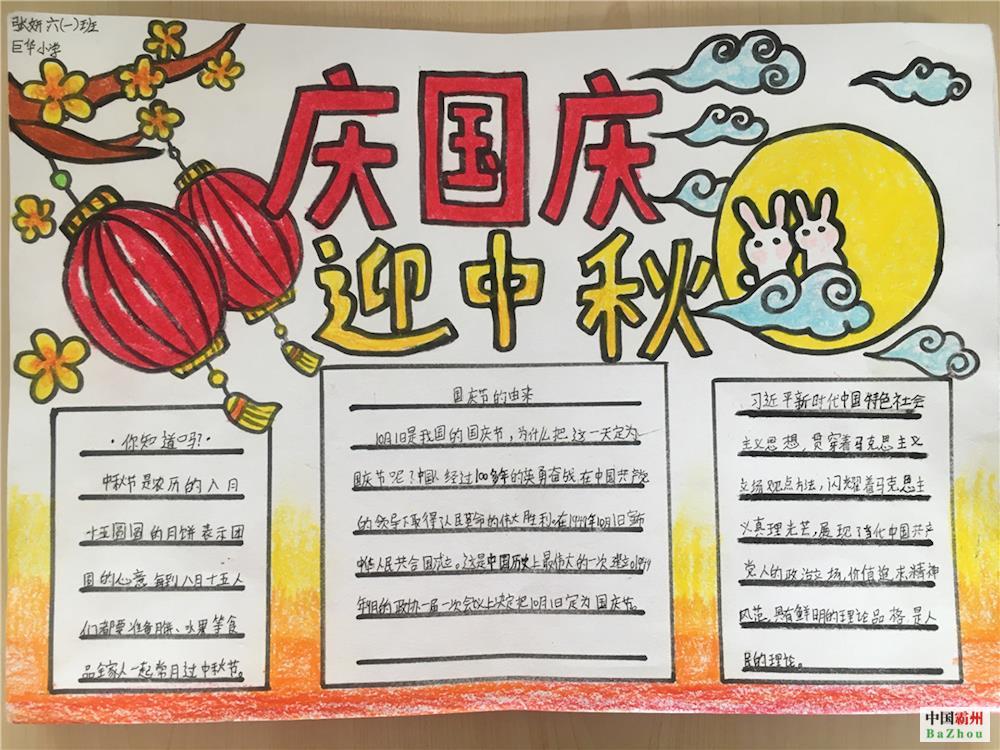 张妍 六(一)班
巨华小学
庆国庆
迎中秋
·你知道吗?·
中秋节是农历的八月
十五圆圆的月饼表示团
圆的心意每到八月十五人
们都要准备月饼、水果等食
品全家人一起赏月过中秋节。
国庆节的由来
10月1日是我国的国庆节,为什么把这一天定为
国庆节呢?中国人经过100多年的英勇奋战在中国共产党
的领导下取得了人民革命的伟大胜利。在1949年10月1日宣布
中华人民共合国成立。这是中国历史上最伟大的一次建立。1949
年9月的政协一届一次会议上决定把10月1日定为国庆节。
习近平新时代中国特色社会
主义思想,贯穿着马克思主义
立场观点方法,闪耀着马克思主
义真理光芒,展现了当代中国共产
党人的政治立场,价值追求精神
风范,具有鲜明的理论品格,是人
民的理论。
中国霸州
BaZhou